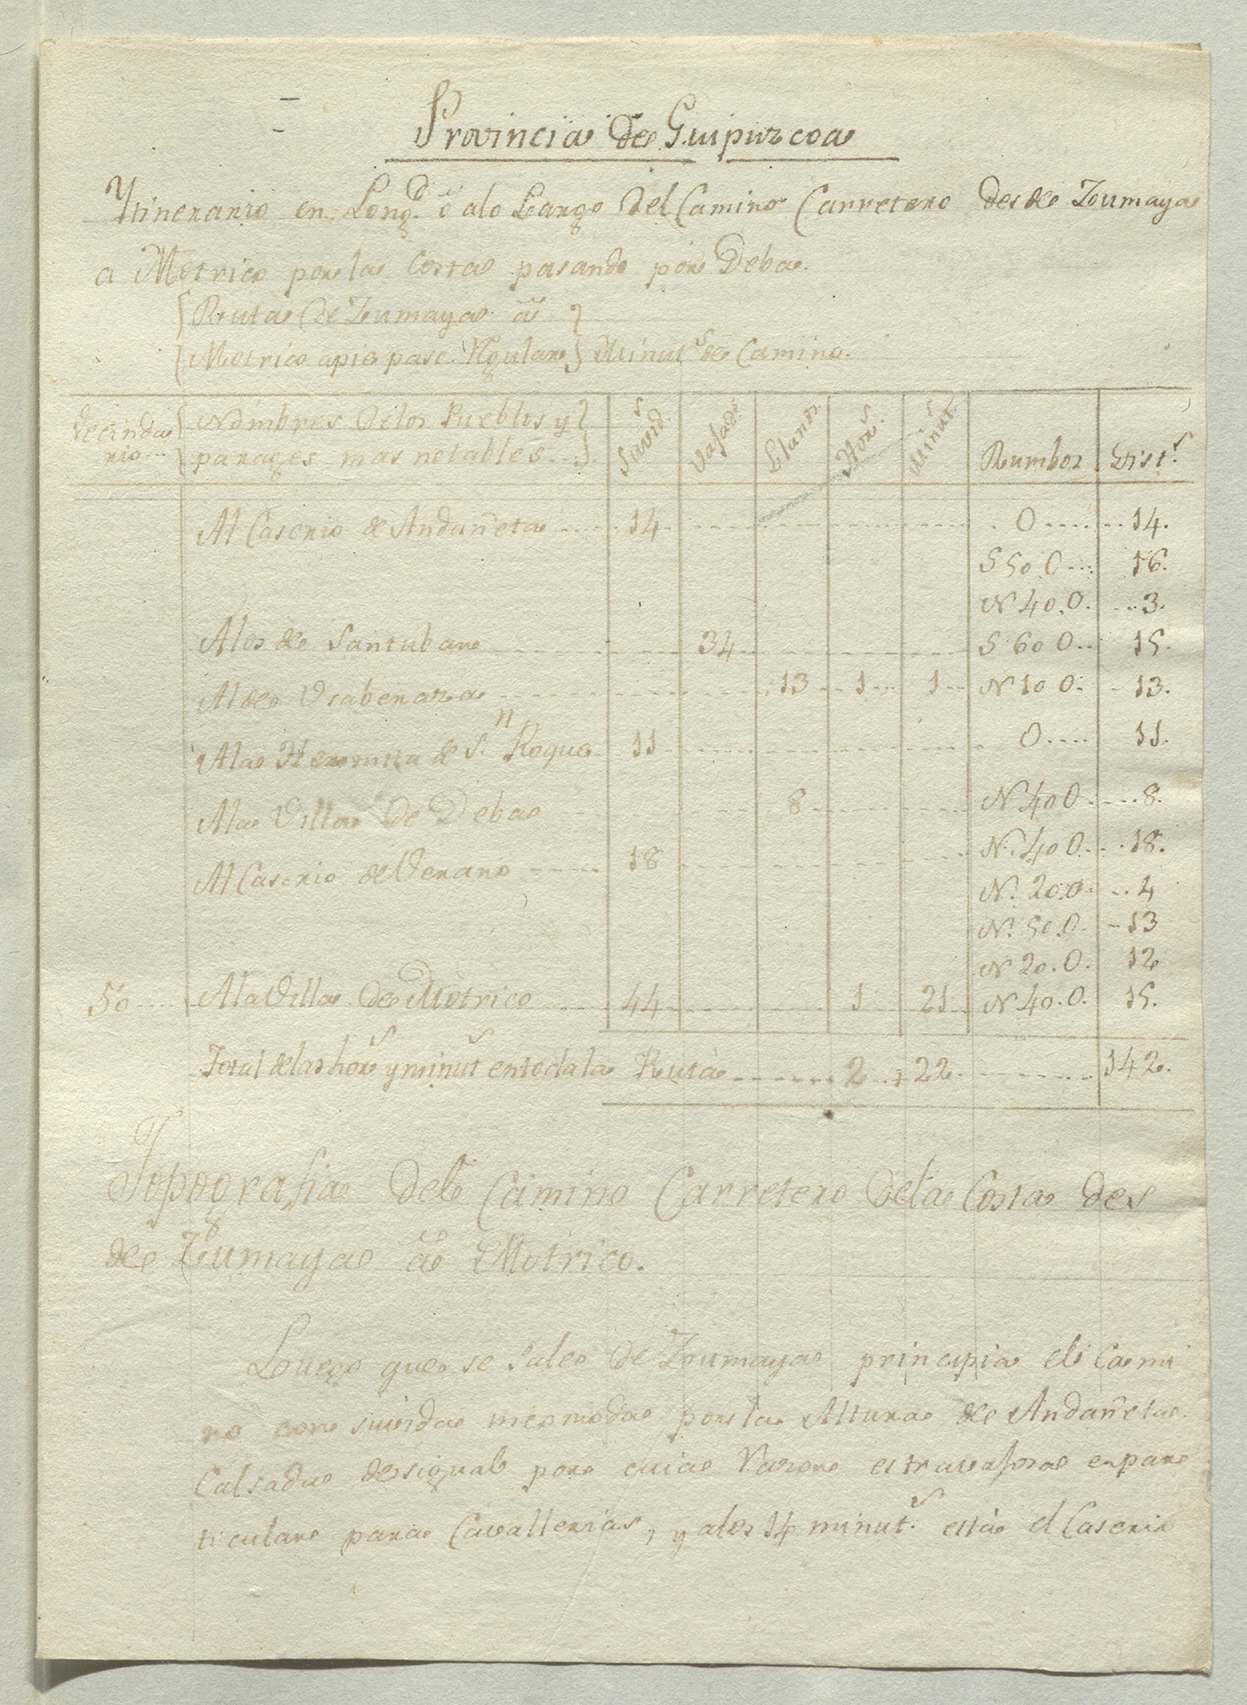 Provincia de Guipuzcoa
Ytinerario en Long.d ò alo Largo del Camino Carretero desde Zumaya
a Motrico por la Costa pasando por Deba.
Ruta de Zumaya à
Motrico apie paso Regular Minut.s de Camino.
Vecindario... Nombres delos Pueblos y parages mas notables... Suvid.s Vajad.s Llanos Hor.s Minut.s Rumbos Dist.s
Al Caserio de Andañeta 14 O 14.
S 50 O 16.
N 40. O. 3.
Alos de Santubar 34 S 60 O 15.
Al de 13 1 1 N 10 O. 13.
Ala Hermita de S.n Roque 11 O 11.
Ala Villa de Deba 8 N 40 O 8.
Al Caserio de Verano 18 N. 40 O. 18.
N. 20. O. 4
N. 50. O. 13
N 20. O. 12
50 Ala Villa de Motrico 44 1 21 N 40. O. 15.
Total de las hor.s y minut.s en toda la Ruta 2 22 142.
Topografia del Camino Carretero dela Costa des
de Zumaya à Motrico.
Luego que se sale de Zumaya principia el Cami
no con suvida incomoda por la Altura de Andañeta
Calsada desigual por cuia Razon es travajosa en par
ticular para Cavallerias, y alos 14 minut.s està el Caserio